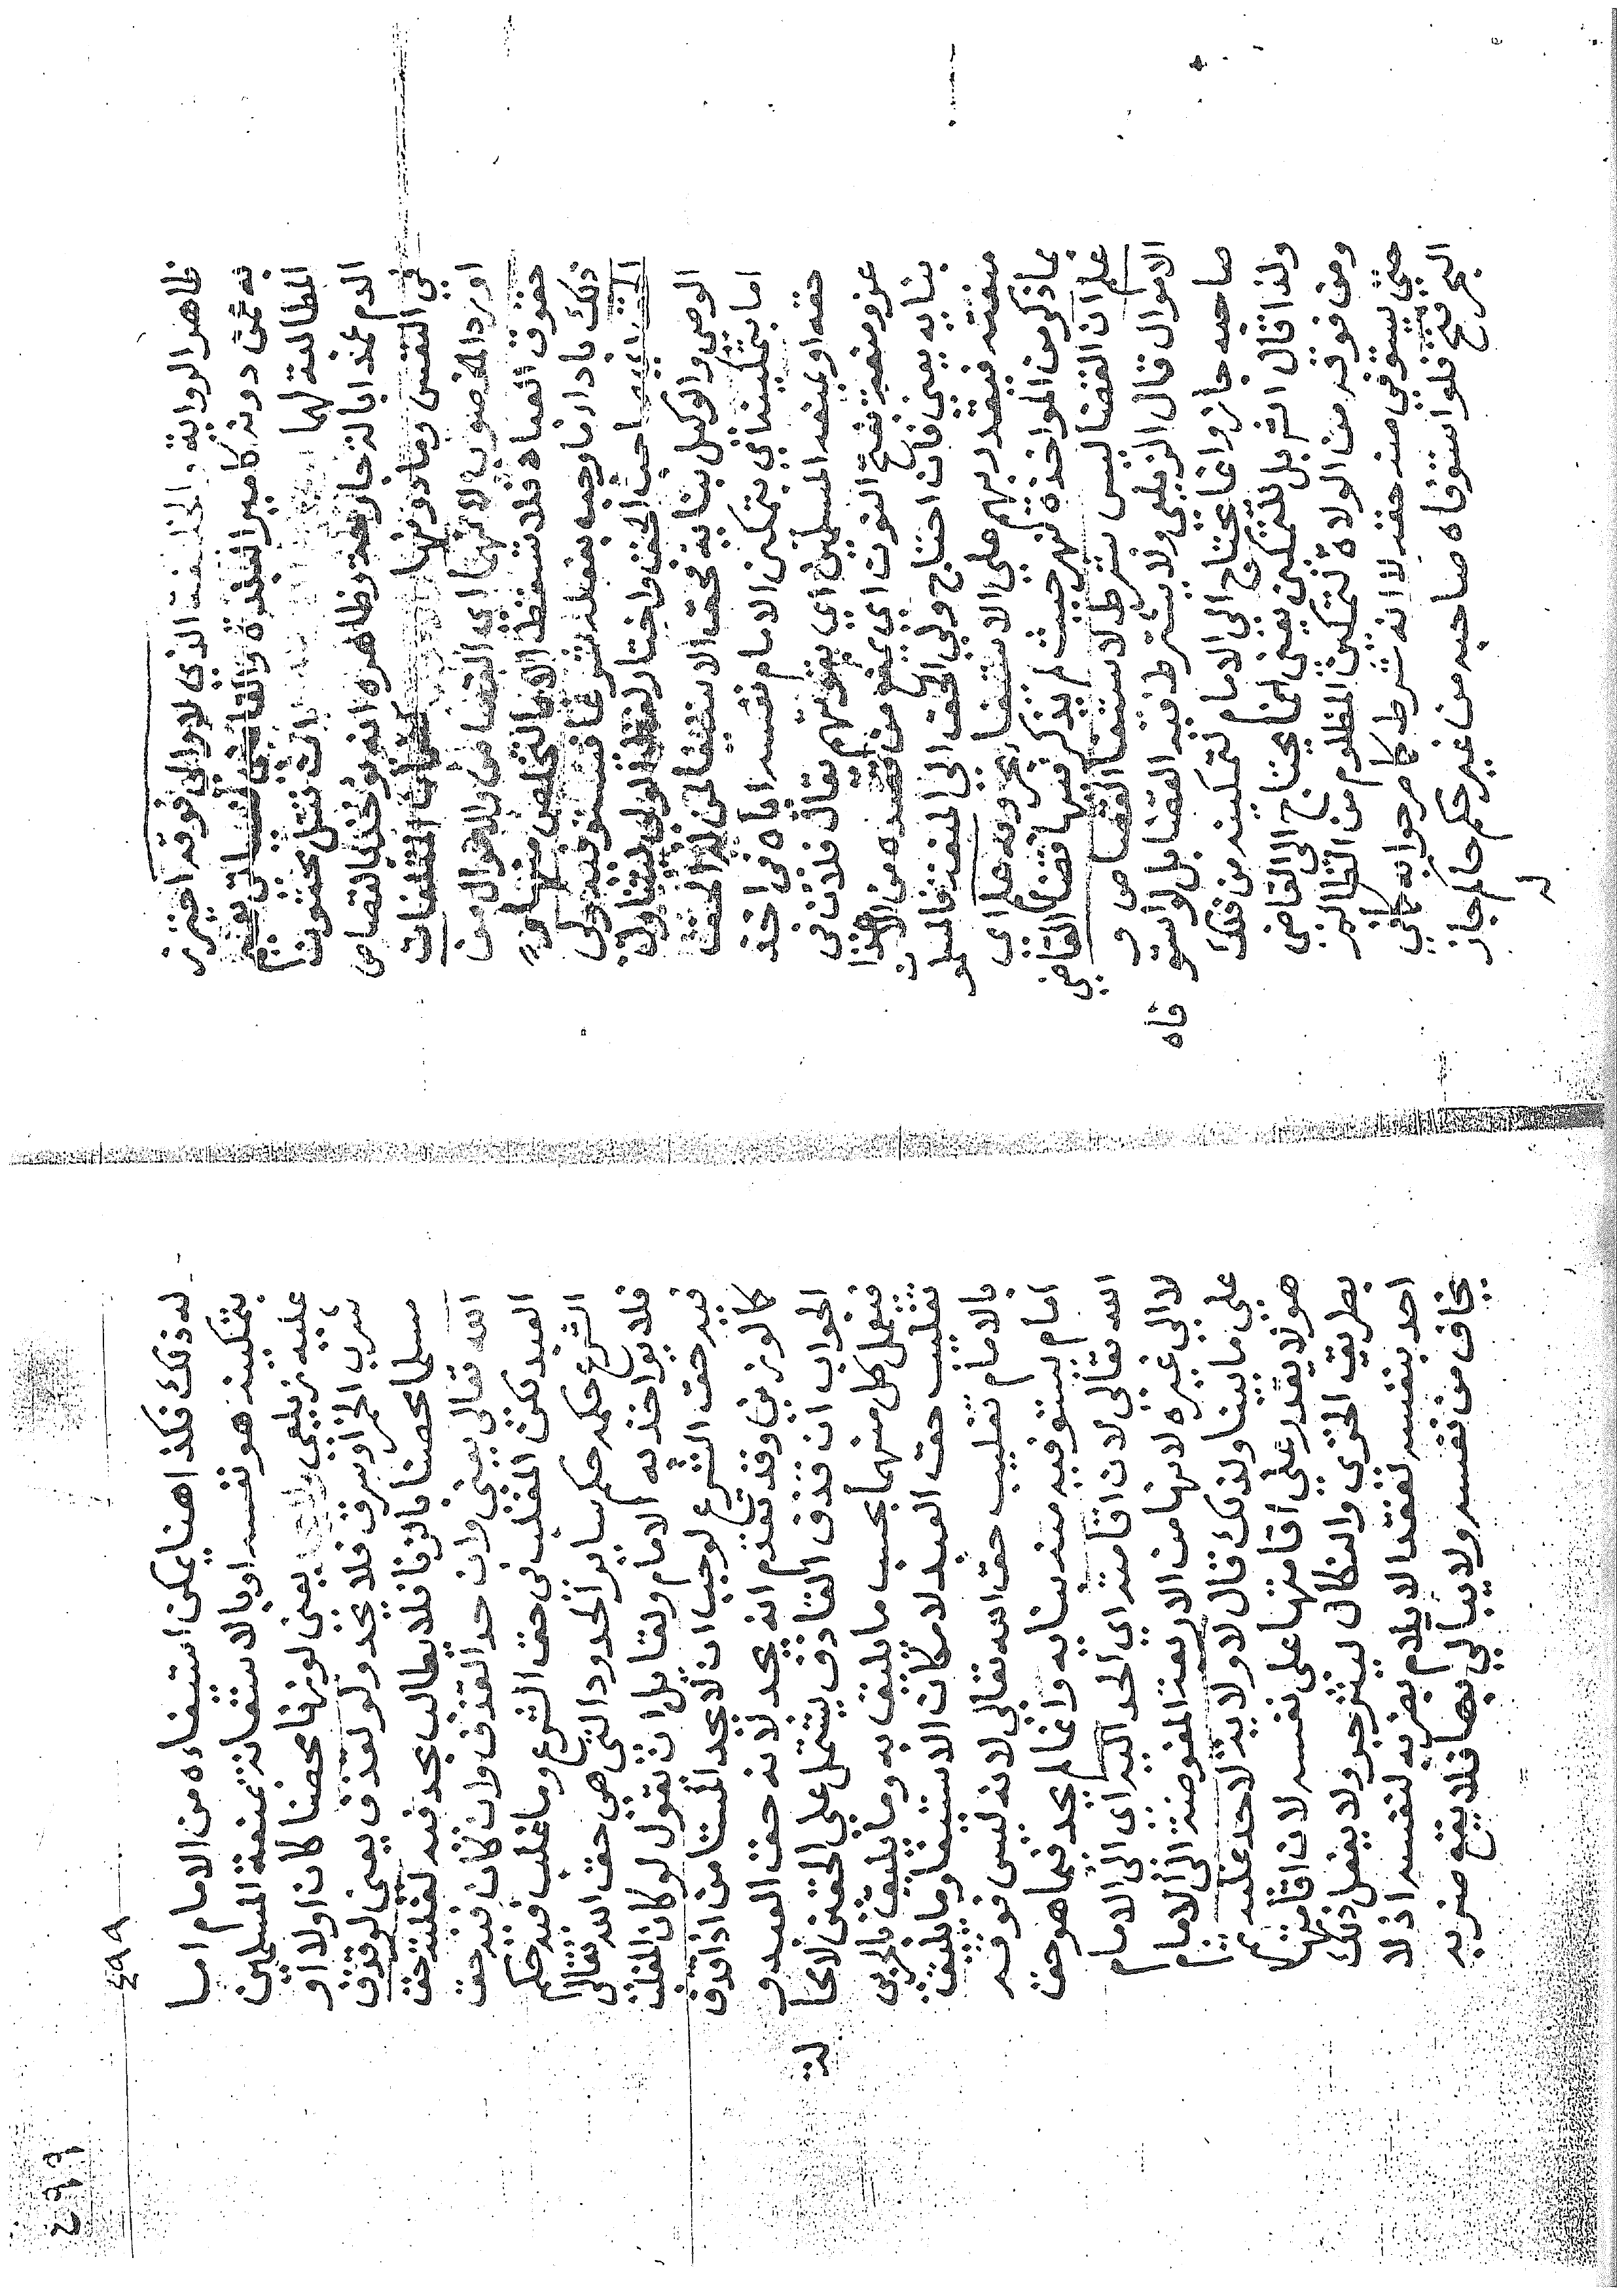 ظاهر الرواية الخليفة الذي لا والي فوقه احترز
به عمن دونه كامير البلدة والقاضي
المطالبة لها
الدم عمدا وظاهره انه يؤخذ بالقصاص
في النفس وما دونها المتلفات
اورد المغصوب لانهما اى القصاص والاموال من
حقوق العباد فلا تسقط الا بالتخلص منها
ذلك بادا ما وجب بفعله شرعا فيستوفيه ولى
الحق اي صاحب الحق واختار لفظ الولى ليتناول
الوصي والوكيل بنيابة فحق الاستيفا لمن له الحق
اما بتمكينه اي بتمكين الامام نفسه اياه فى اخذ
حقه او بمنعة المسلمين اي بقوتهم يقال فلان فى
عز ومنعة بفتح النون اي يمنع من قصده من الاذا
بنيابة يعنى فان احتاج ولي الحق الى المنعة فالمسلمون
منعته فيقدر بهم على الاستيفا وبه علم اى
بما ذكر من المواخذة بهما حيث لم يذكر فيها قضا القاضي
علم ان القضا ليس بشرط لاستيفا القصاص و
الاموال قال الزيلعى ولا يشترط فيه القضا بل لو استوفاه
صاحبه جاز وانما يحتاج الى الامام لتمكينه من ذلك
ولذا قال الشرح بل للتمكين يعنى انما يحتاج الى القاضى
ومن فوقه من الولاة لتمكين المظلوم من الظالم
حتى يستوفى منه حقه لا انه شرط كامر جوابه في
البحر فتح فلو استوفاه صاحبه من غير حكم حاكم جاز
له
٤٩٩
له ذلك فكذا هنا يمكن استيفاءه من الامام اما
بتمكينه هو نفسه او بالاستعانة بمنعة المسلمين
عليه زيلعى يعنى لو زنا محصنا كان اولا او
شرب الخمر او سرق فلا يحد ولو لقذف يعنى لو قذف
مسلما محصنا بالزنا فلا يطالب بحد قذفه لغلبة حق
الله تعالى يعنى وان حد القذف وان كان فيه حق
العبد لكن المغلب فى حق الشرع وما غلب فيه حكم
الشرع حكمه حكم ساير الحدود التى هى حق الله تعالى
فلا يواخذ به الامام ولقائل ان تقول لو كان المغلب
فيه حق الشرع لوجب ان لا يحد المستامن اذا قذف
كالو زنى وقد تقدم انه يحد لانه حق العبد و
الجواب ان قذف القاذف يشتمل على الحقين لا محالة
فيعمل كل منهما بحسب ما يليق به وما يليق بالحربى
تغليب حق العبد لامكان الاستيفا وما يليق
بالامام تغليب حق الله تعالى لانه ليس فوقه
امام يستوفيه منه نيابة وانما لم يحد فيما هو حق
الله تعالى لان اقامته اى الحد اليه اى الى الامام
لا الى غيره لانها من الاربعة المفوضة الى الامام
على ما بينا ولذلك قال لا ولاية لاحد عليه
هو لا يقدر على اقامتها على نفسه لان اقامتها
بطريق الخزي والنكال لينزجر ولا يفعل ذلك
احد بنفسه لفقد الايلام بضربه لنفسه اذ لا
يخاف من نفسه ولا يبالي بها فلا يقع ضربه